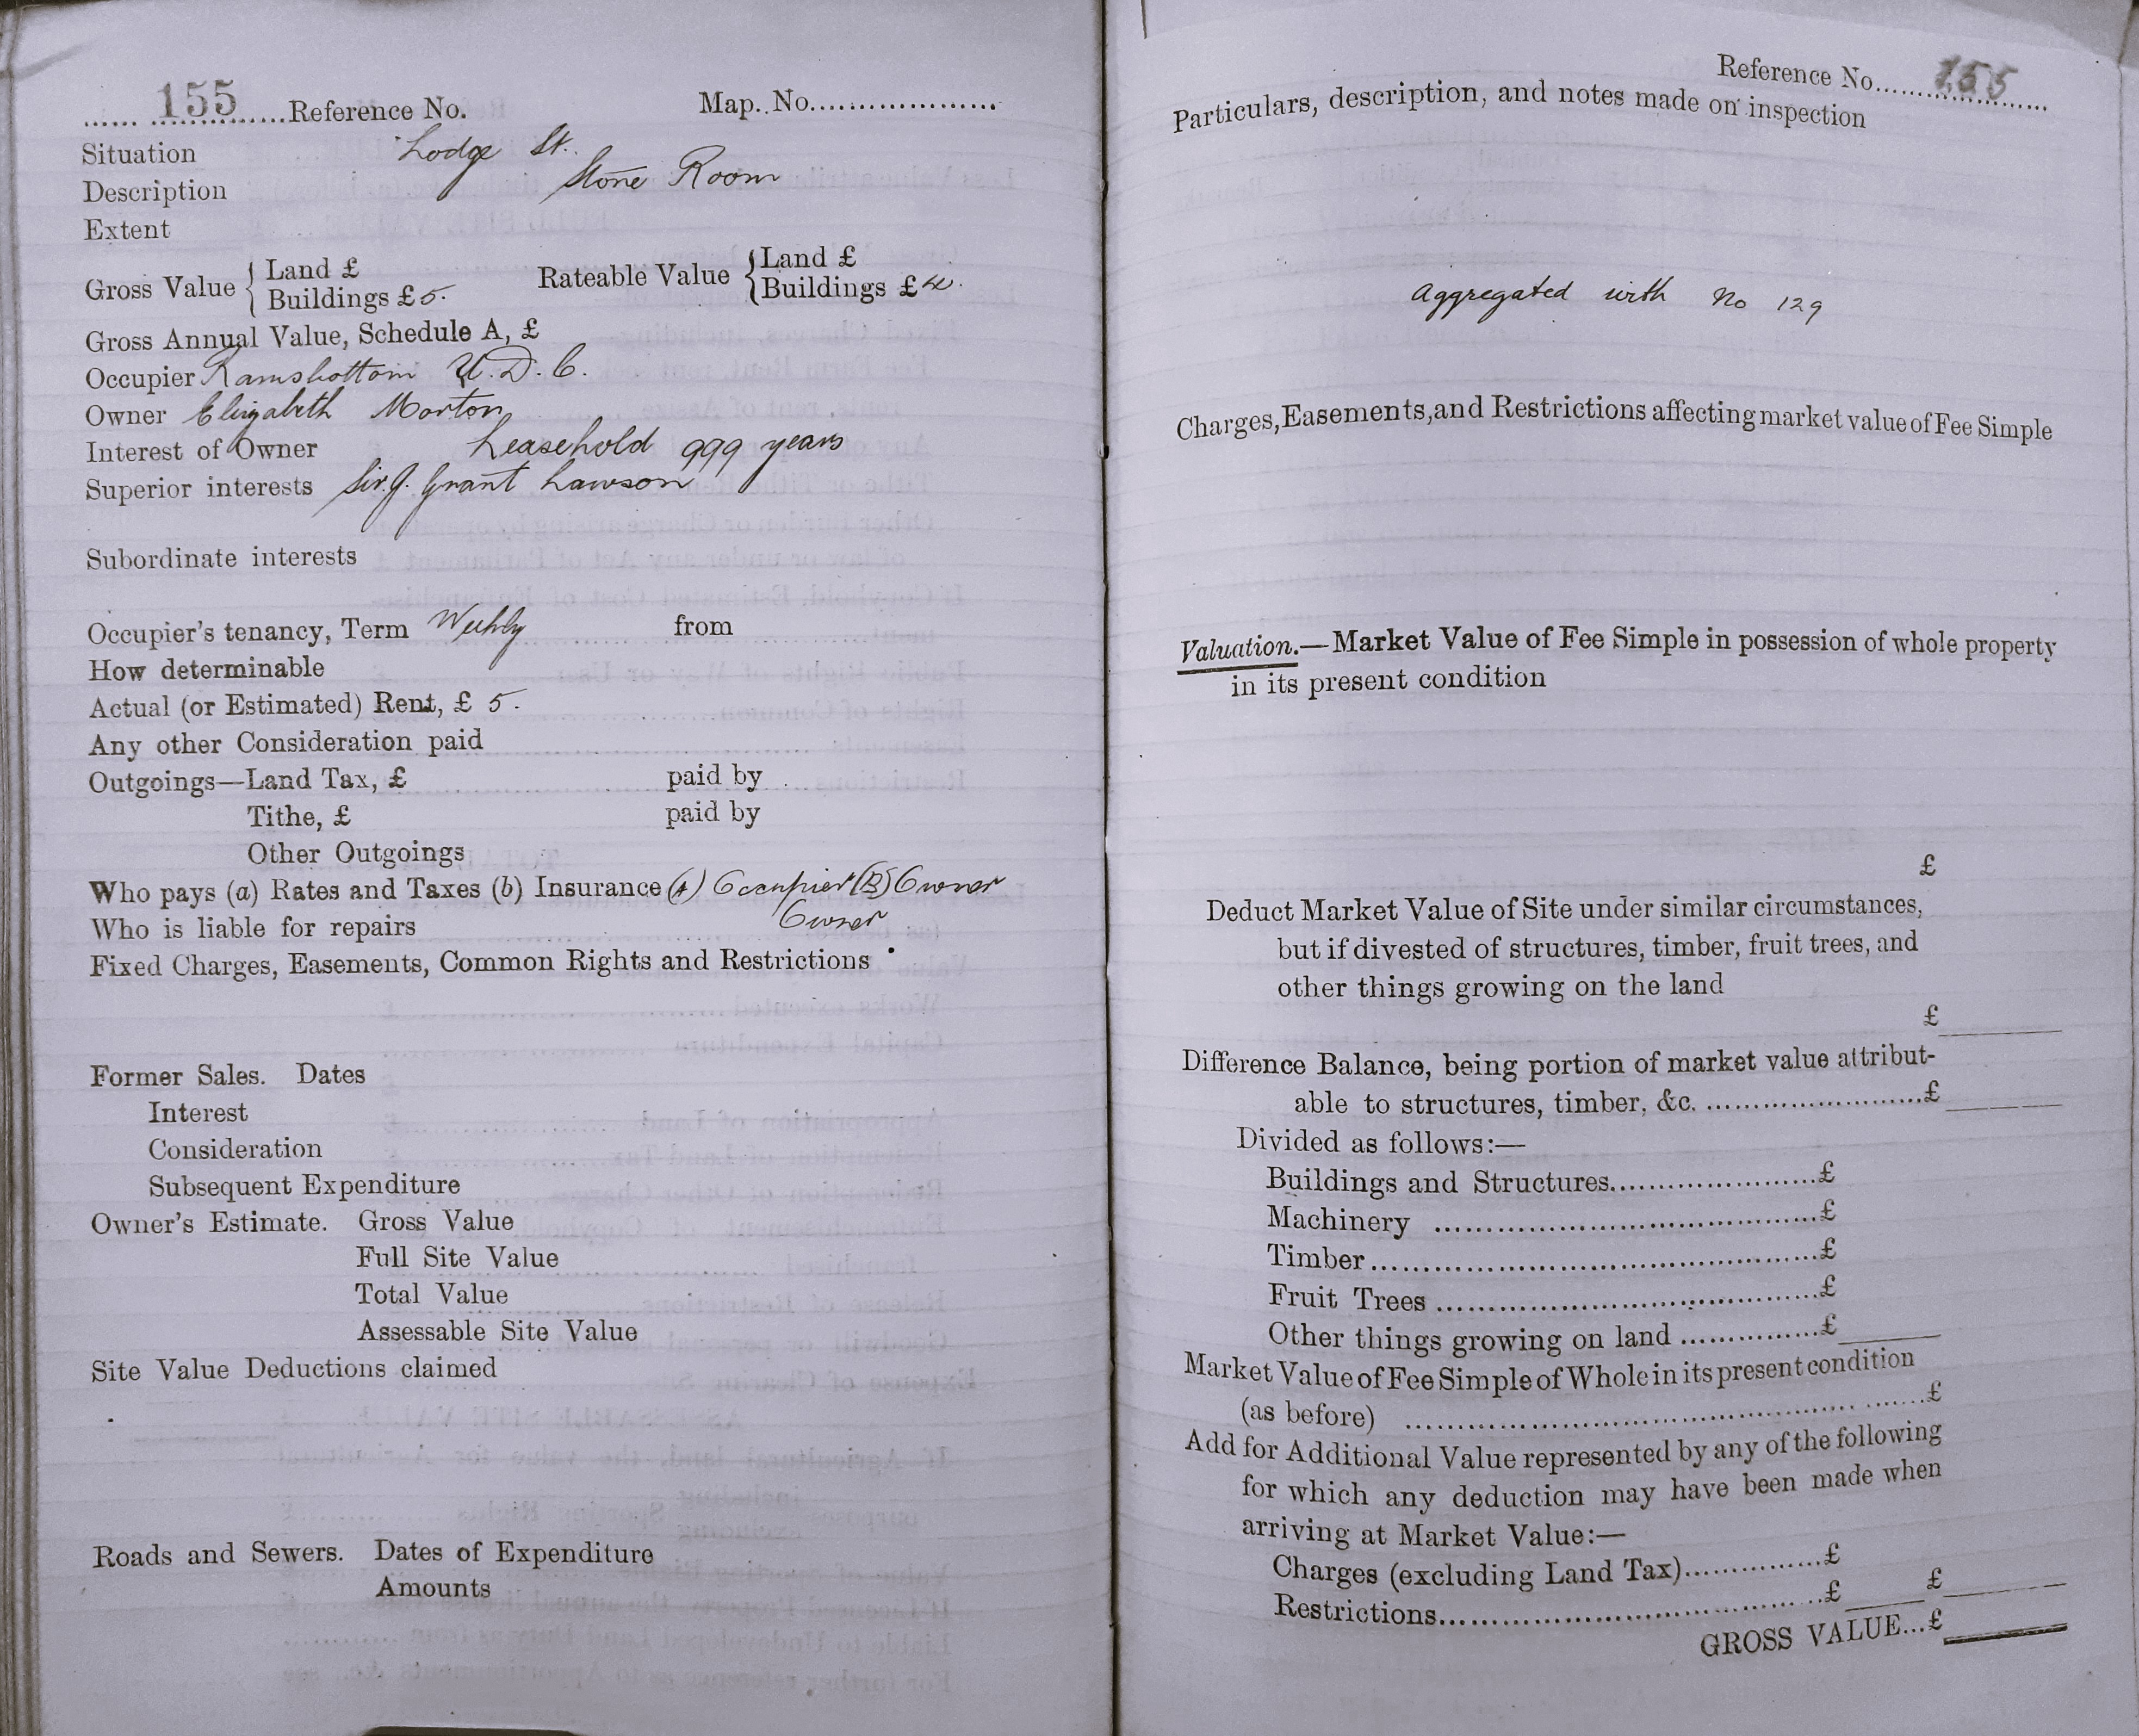 155 Reference No. Map. No.
Situation Lodge St.
Description Store Room
Extent
Gross Value { Land £ Rateable Value { Land £
Buildings £ 5. Buildings £ 4.
Gross Annual Value, Schedule A, £
Occupier Ramsbottom U.D.C.
Owner Elizabeth Morton
Interest of Owner Leasehold 999 years
Superior interests Sir J. Grant Lawson
Subordinate interests
Occupier's tenancy, Term Weekly from
How determinable
Actual (or Estimated) Rent, £ 5.
Any other Consideration paid
Outgoings—Land Tax, £ paid by
Tithe, £ paid by
Other Outgoings
Who pays (a) Rates and Taxes (b) Insurance (A) Occupier (B) Owner
Who is liable for repairs Owner
Fixed Charges, Easements, Common Rights and Restrictions
Former Sales. Dates
Interest
Consideration
Subsequent Expenditure
Owner's Estimate. Gross Value
Full Site Value
Total Value
Assessable Site Value
Site Value Deductions claimed
Roads and Sewers. Dates of Expenditure
Amounts
Reference No. 155
Particulars, description, and notes made on inspection
Aggregated with No 129
Charges, Easements, and Restrictions affecting market value of Fee Simple
Valuation.—Market Value of Fee Simple in possession of whole property
in its present condition
£
Deduct Market Value of Site under similar circumstances,
but if divested of structures, timber, fruit trees, and
other things growing on the land
£
Difference Balance, being portion of market value attribut-
able to structures, timber, &c. £
Divided as follows:—
Buildings and Structures £
Machinery £
Timber £
Fruit Trees £
Other things growing on land £
Market Value of Fee Simple of Whole in its present condition
(as before) £
Add for Additional Value represented by any of the following
for which any deduction may have been made when
arriving at Market Value:—
Charges (excluding Land Tax) £
Restrictions £ £
GROSS VALUE...£